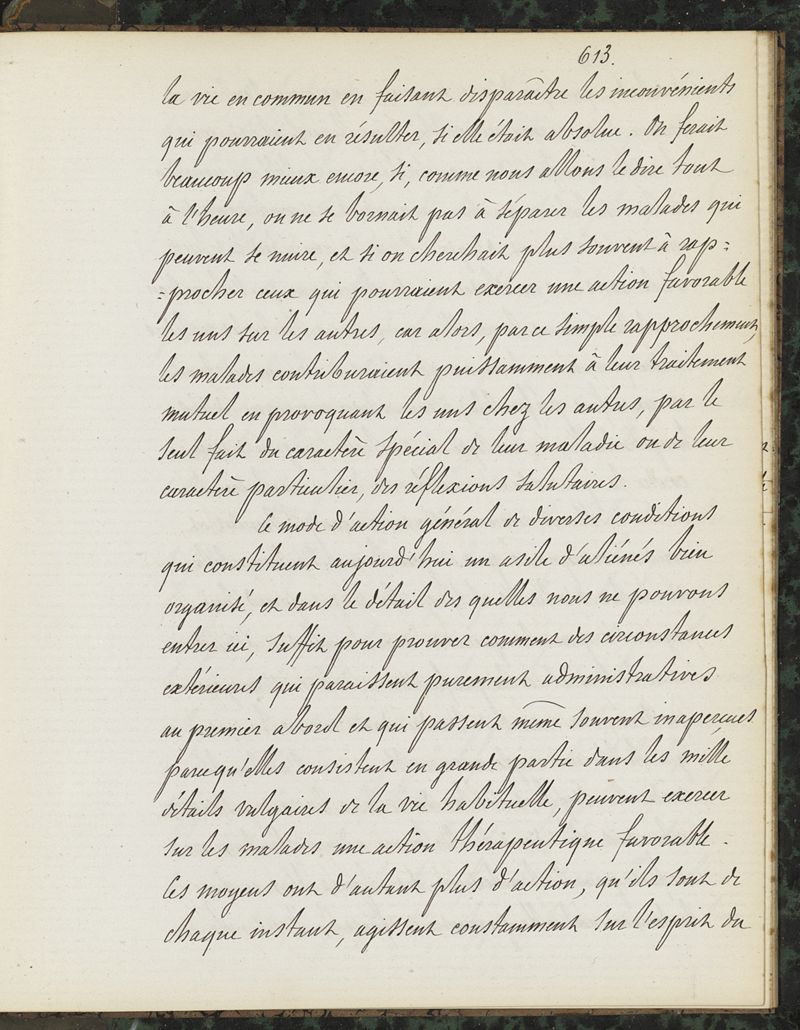 613.
la vie en commun en faisant disparaître les inconvénients
qui pourraient en résulter, si elle était absolue. On ferait
beaucoup mieux encore, si, comme nous allons le dire tout
à l'heure, on ne se bornait pas à séparer les malades qui
peuvent se nuire, et si on cherchait plus souvent à rap=
=procher ceux qui pourraient exercer une action favorable
les uns sur les autres, car alors, par ce simple rapprochement,
les malades contriburaient puissamment à leur traitement
mutuel en provoquant les uns chez les autres, par le
seul fait du caractère spécial de leur maladie ou de leur
caractère particulier, des réflexions salutaires.
Ce mode d'action général de diverses conditions
qui constituent aujourd'hui un asile d'aliénés bien
organisé, et dans le détail des quelles nous ne pouvons
entrer ici, suffit pour prouver comment des circonstances
extérieures qui paraissent purement administratives
au premier abord et qui passent même souvent inaperçues
parcequ'elles consistent en grande partie dans les mille
détails vulgaires de la vie habituelle, peuvent exercer
sur les malades une action thérapeutique favorable.
Ces moyens ont d'autant plus d'action, qu'ils sont de
chaque instant, agissent constamment sur l'esprit du